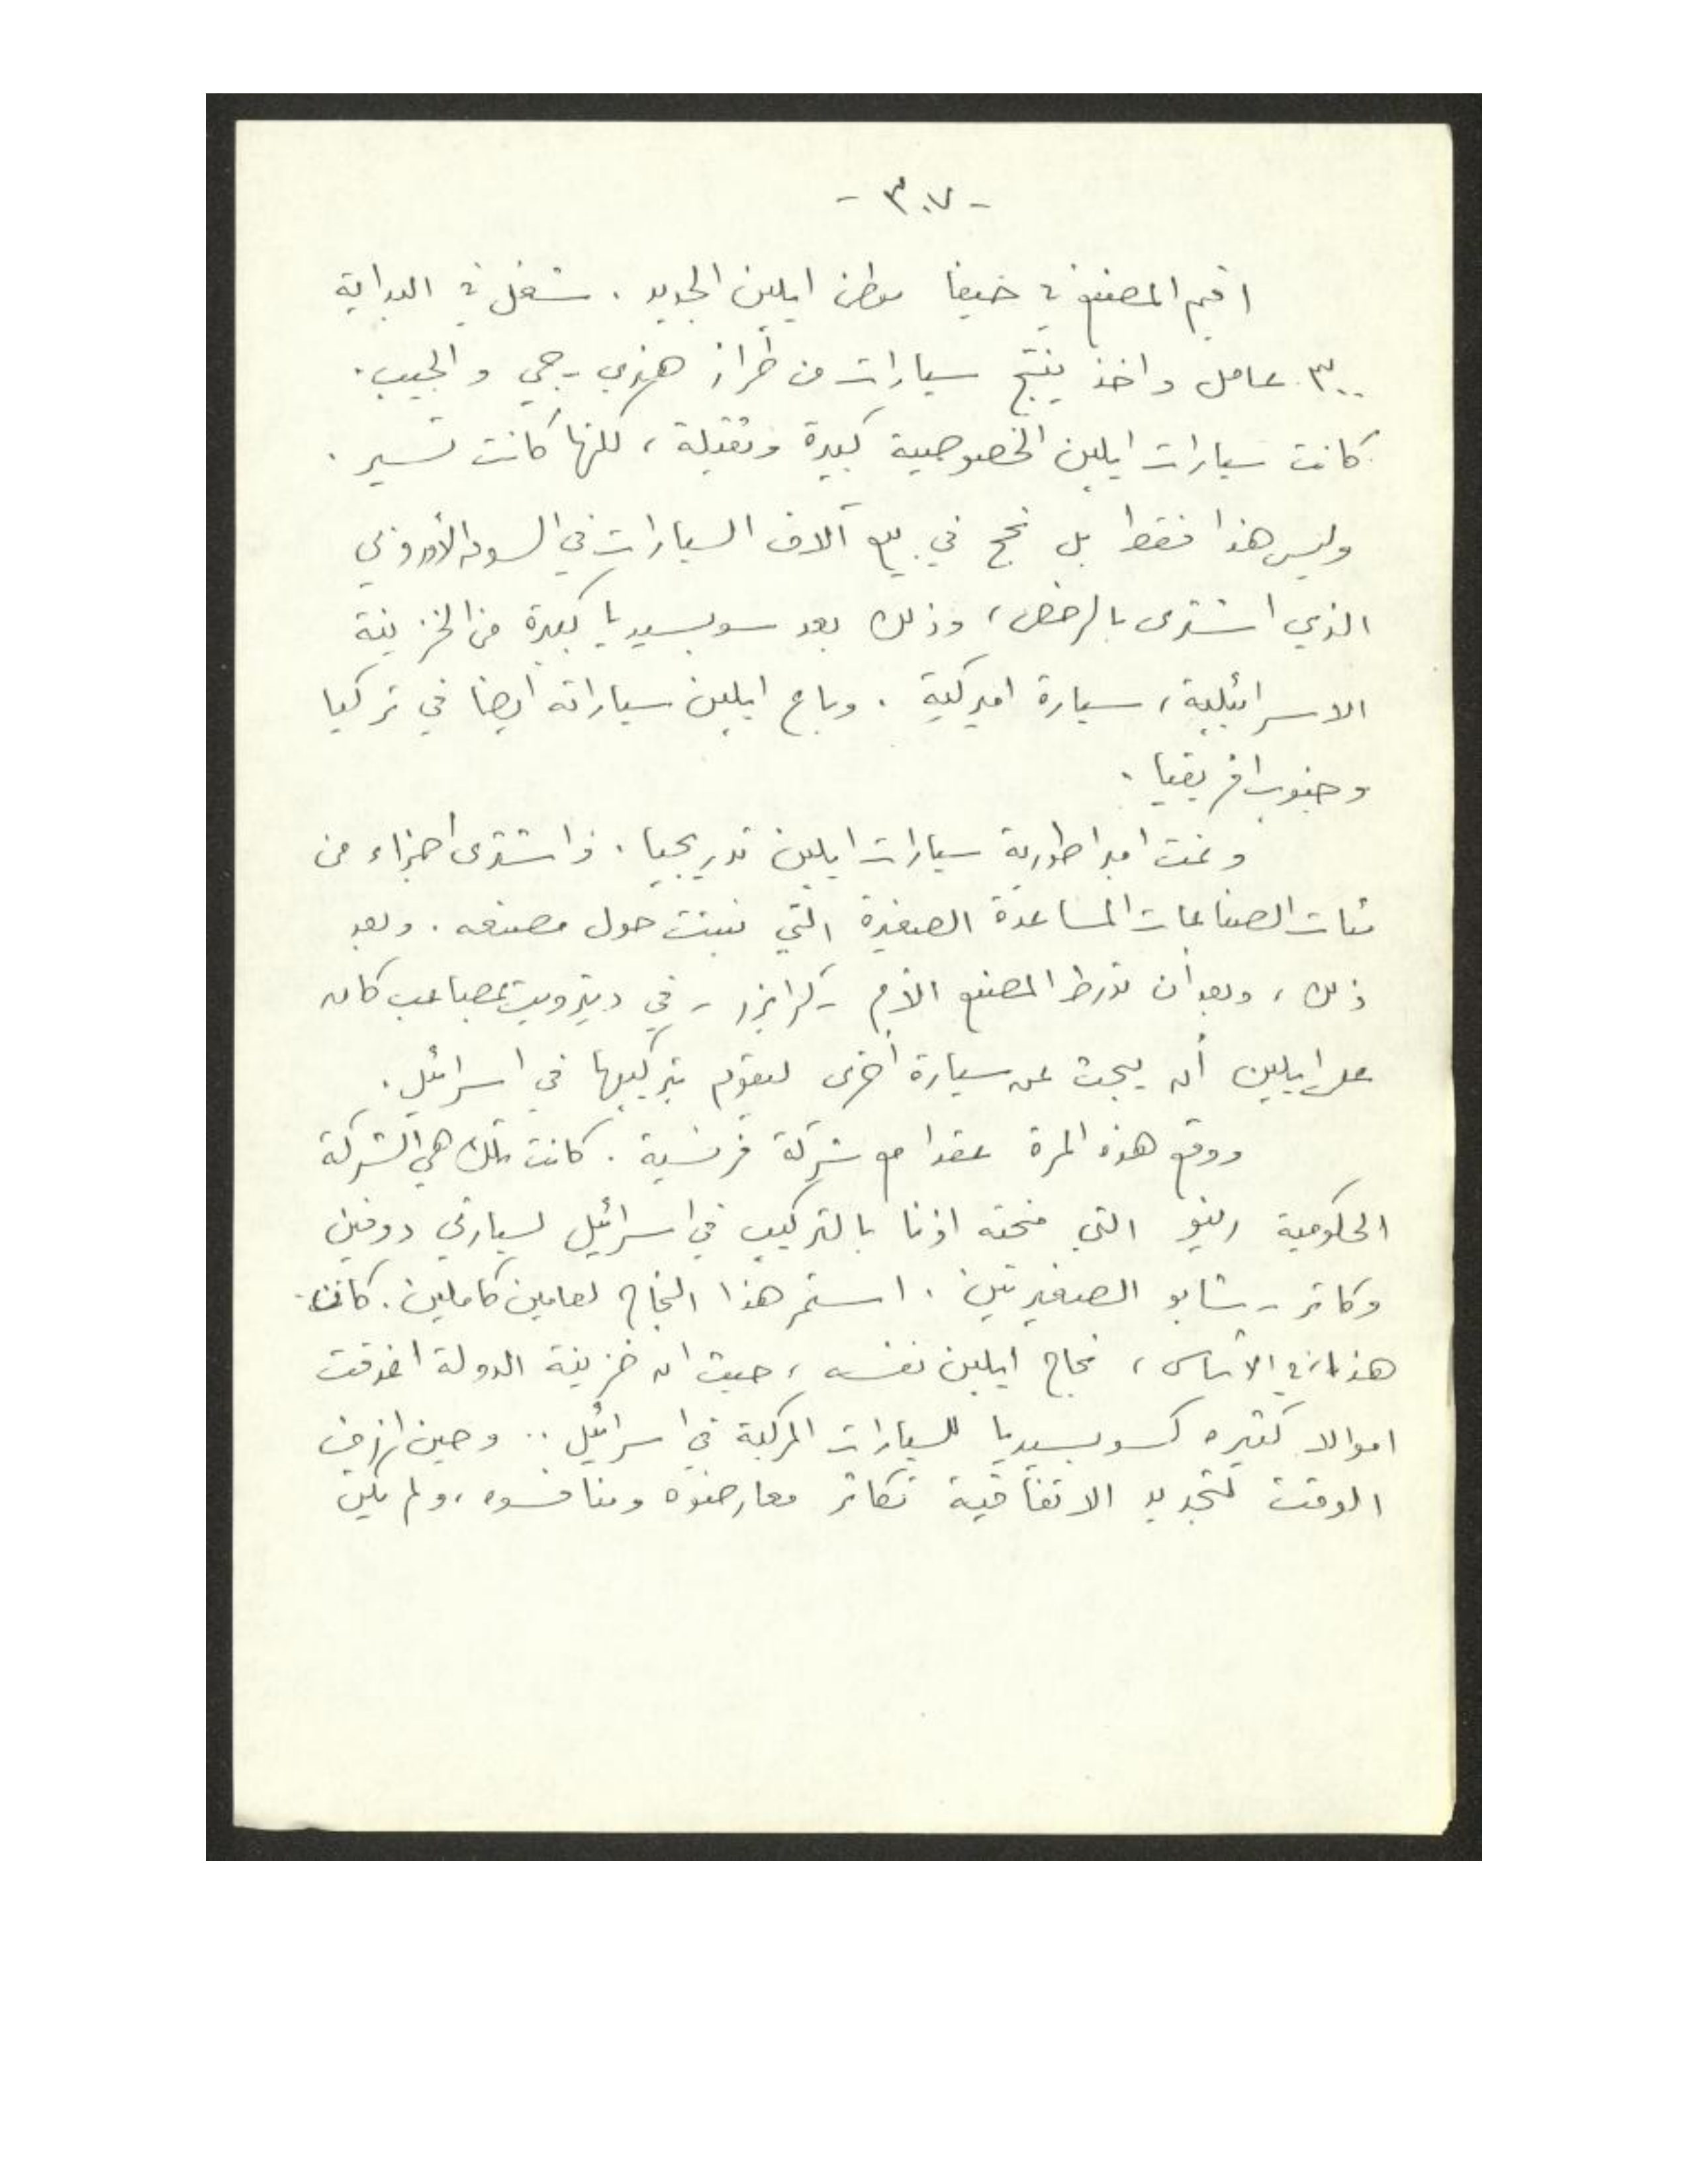 - ٣٠٧ -
اقيم المصنع في حيفا موطن ايلين الجديد . شغل في البداية
٣٠٠ عامل واخذ ينتج سيارات من طراز هنري - جي والجيب .
كانت سيارات ايلين الخصوصية كبيرة وثقيلة ، لكنها كانت تسير .
وليس هذا فقط بل نجح في بيع آلاف السيارات في السوق الأوروبي
الذي اشترى بالرخص ، وذلك بعد سوبسيديا كبيرة من الخزينة
الاسرائيلية ، سيارة اميركية . وباع ايلين سياراته ايضا في تركيا
وجنوب افريقيا .
ونمت امبراطورية سيارات ايلين تدريجيا . فاشترى اجزاء من
مئات الصناعات المساعدة الصغيرة التي نبتت حول مصنعه . وبعد
ذلك ، وبعد أن تورط المصنع الأم - كرايزر - في ديترويت بمصاعب كان
على ايلين أن يبحث عن سيارة أخرى ليقوم بتركيبها في اسرائيل .
ووقع هذه المرة عقدا مع شركة فرنسية . كانت تلك هي الشركة
الحكومية رينو التي منحته اذنا بالتركيب في اسرائيل لسيارتي دوفين
وكاتر - شابو الصغيرتين . استمر هذا النجاح لعامين كاملين . كان
هذا ، في الأساس ، نجاح ايلين نفسه ، حيث ان خزينة الدولة اغدقت
اموالا كثيره كسوبسيديا للسيارات المركبة في اسرائيل .. وحين ازف
الوقت لتجديد الاتفاقية تكاثر معارضوه ومنافسوه ، ولم يكن